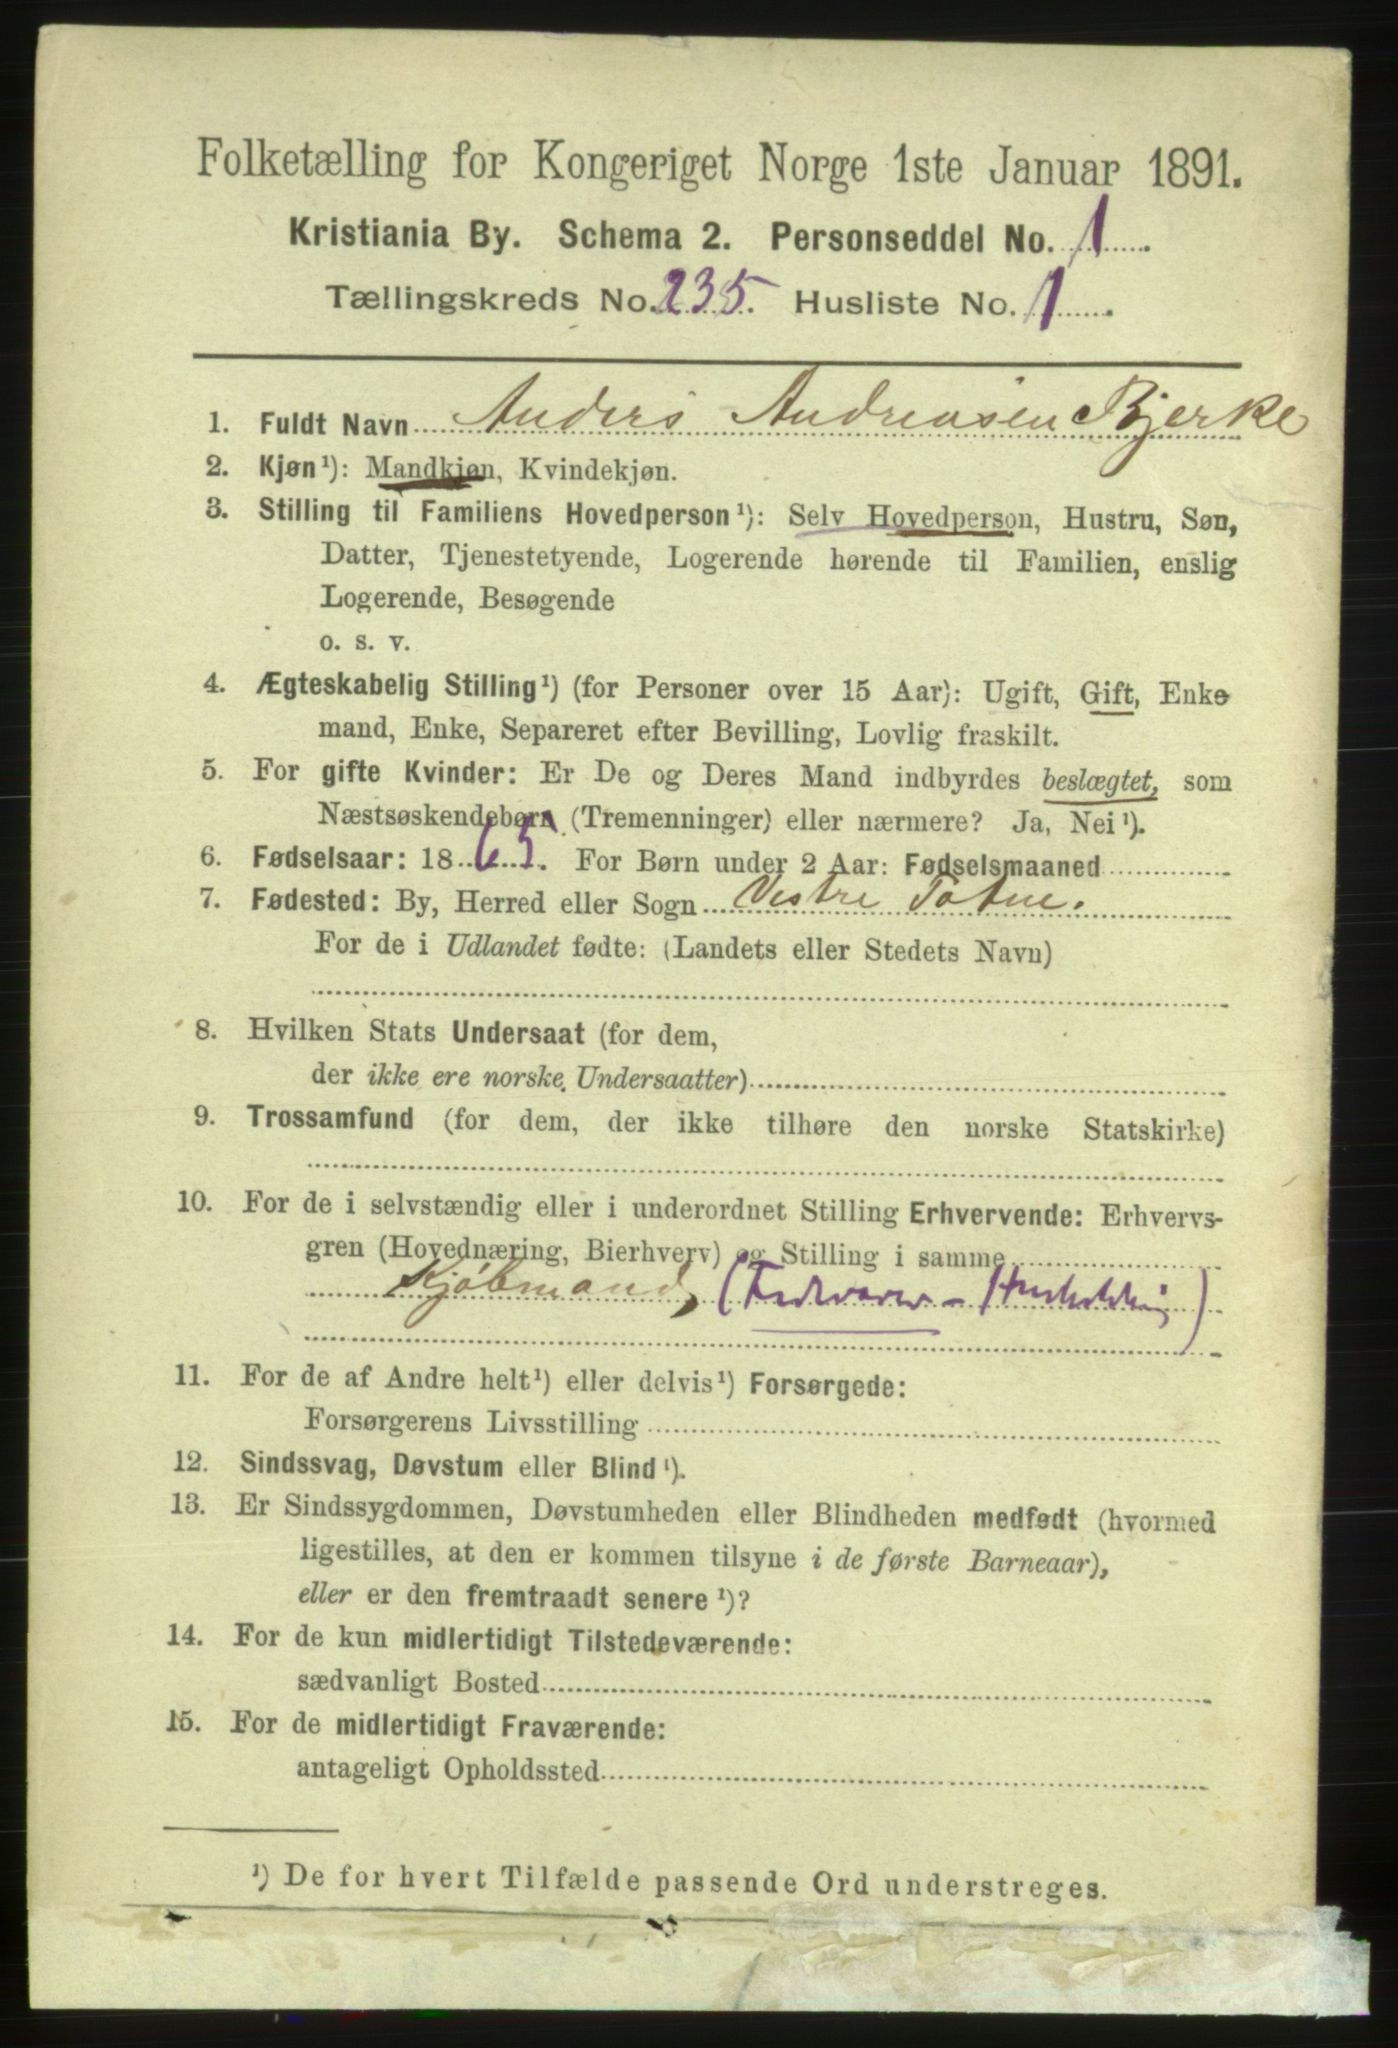 Folketælling for Kongeriget Norge 1ste Januar 1891.
Kristiania By. Schema 2. Personseddel No. 1.
Tællingskreds No. 235. Husliste No. 1.
1. Fuldt Navn Anders Andreasen Bjerke
2. Kjøn¹): Mandkjøn, Kvindekjøn.
3. Stilling til Familiens Hovedperson¹): Selv Hovedperson, Hustru, Søn,
Datter, Tjenestetyende, Logerende hørende til Familien, enslig
Logerende, Besøgende
o. s. v.
4. Ægteskabelig Stilling¹) (for Personer over 15 Aar): Ugift, Gift, Enke-
mand, Enke, Separeret efter Bevilling, Lovlig fraskilt.
5. For gifte Kvinder: Er De og Deres Mand indbyrdes beslægtet, som
Næstsøskendebørn (Tremenninger) eller nærmere? Ja, Nei¹).
6. Fødselsaar: 1865. For Børn under 2 Aar: Fødselsmaaned
7. Fødested: By, Herred eller Sogn Vestre Toten.
For de i Udlandet fødte: (Landets eller Stedets Navn)
8. Hvilken Stats Undersaat (for dem,
der ikke ere norske Undersaatter)
9. Trossamfund (for dem, der ikke tilhøre den norske Statskirke)
10. For de i selvstændig eller i underordnet Stilling Erhvervende: Erhvervs-
gren (Hovednæring, Bierhverv) og Stilling i samme
Kjøbmand, (Fedevarer -
11. For de af Andre helt¹) eller delvis¹) Forsørgede:
Forsørgerens Livsstilling
12. Sindssvag, Døvstum eller Blind¹).
13. Er Sindssygdommen, Døvstumheden eller Blindheden medfødt (hvormed
ligestilles, at den er kommen tilsyne i de første Barneaar),
eller er den fremtraadt senere¹)?
14. For de kun midlertidigt Tilstedeværende:
sædvanligt Bosted
15. For de midlertidigt Fraværende:
antageligt Opholdssted
¹) De for hvert Tilfælde passende Ord understreges.